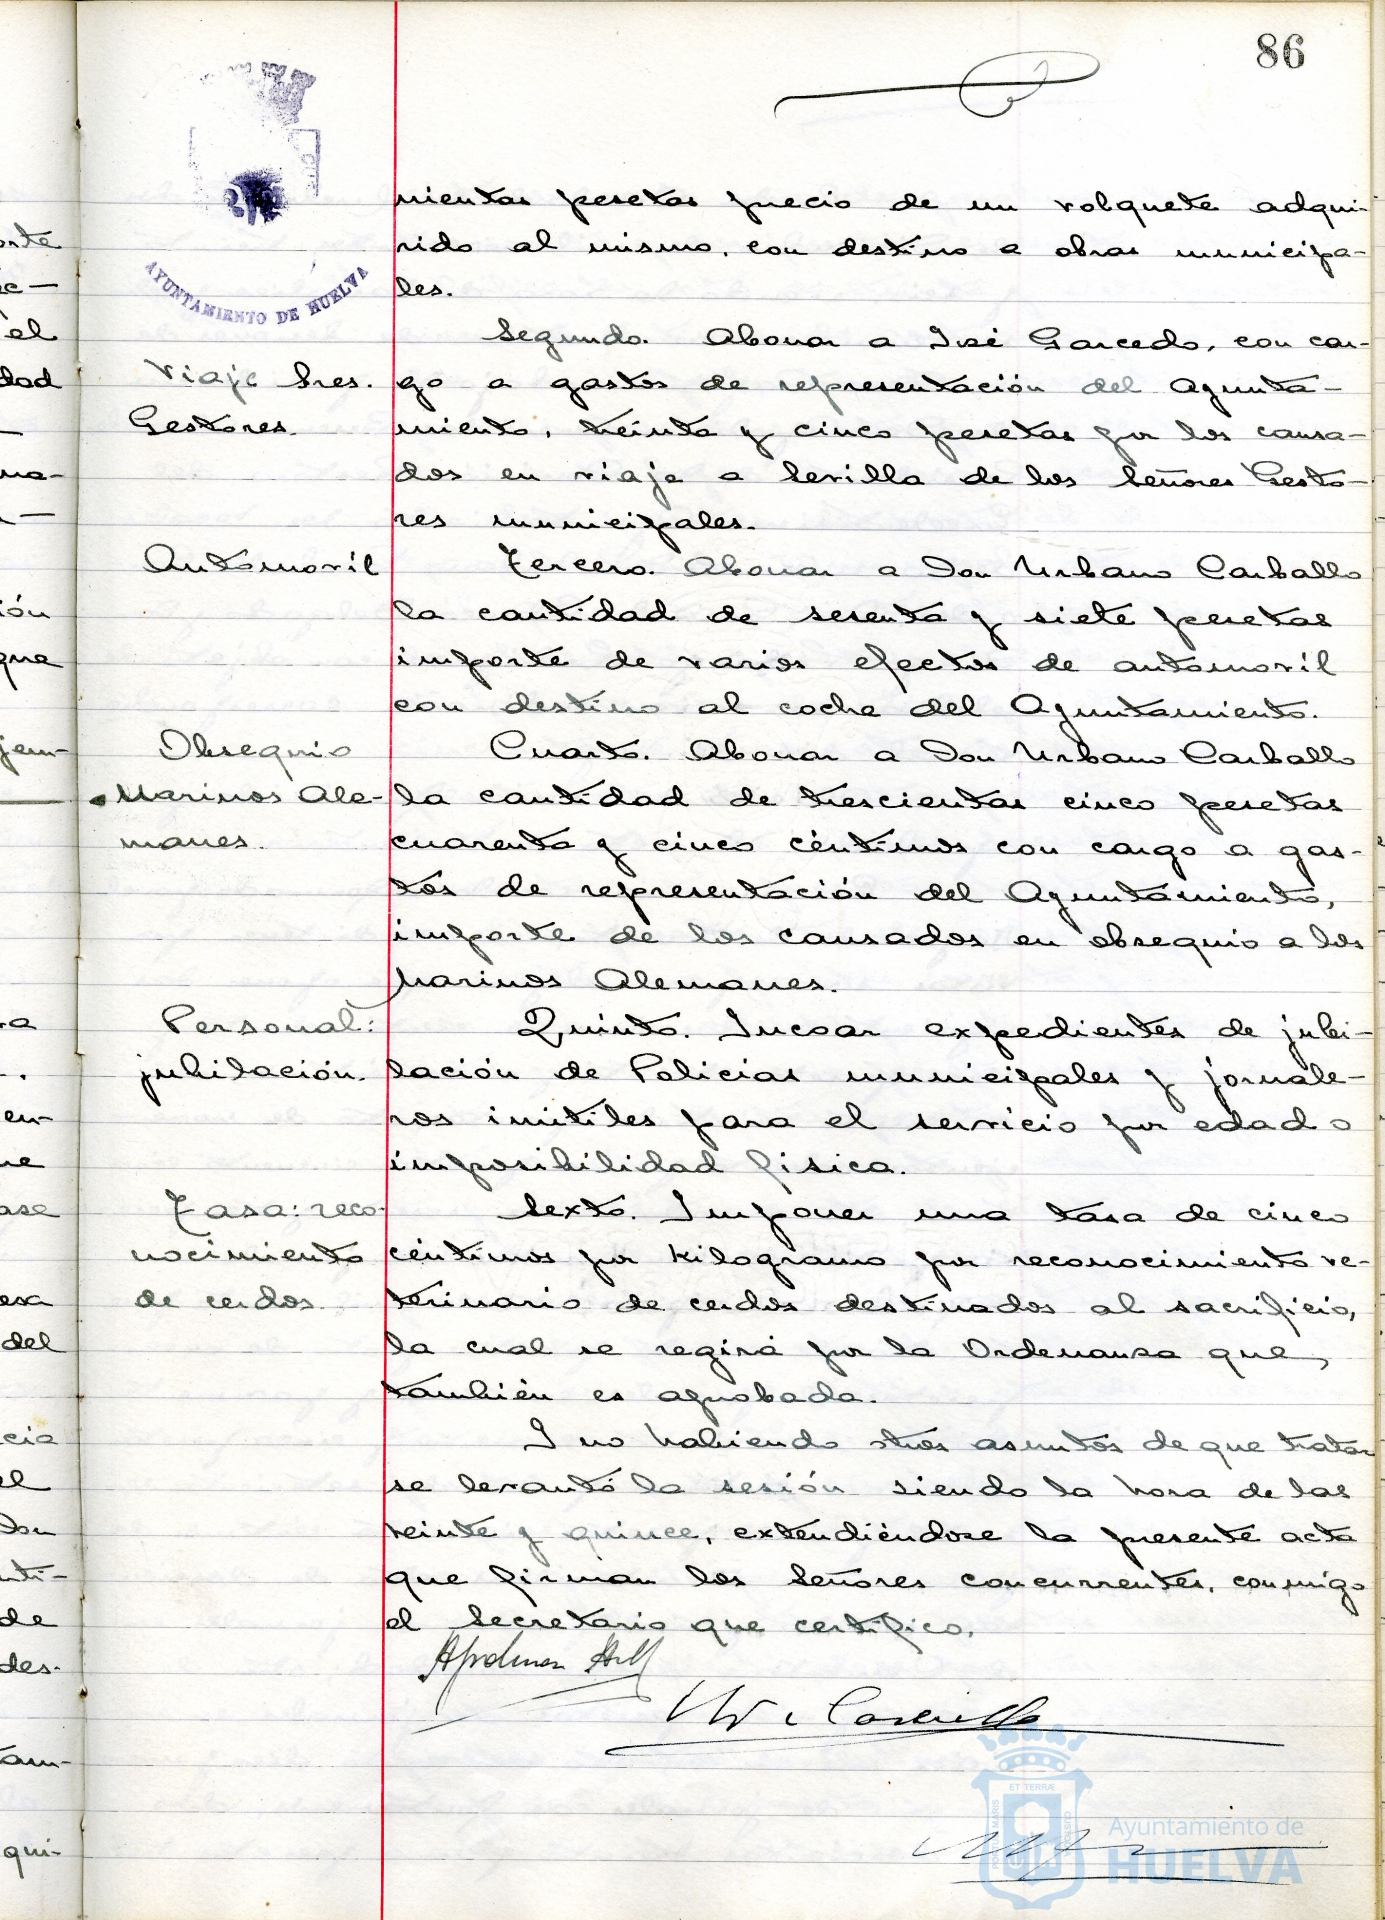 86
AYUNTAMIENTO DE HUELVA
nientas pesetas precio de un volquete adqui-
rido al mismo, con destino a obras municipa-
les.
Segundo. Abonar a José Garcedo, con car-
Viaje Sres.
Gestores.
go a gastos de representación del Ayunta-
miento, treinta y cinco pesetas por los causa-
dos en viaje a Sevilla de los Señores Gesto-
res municipales.
Automovil
Tercero. Abonar a Don Urbano Carballo
la cantidad de sesenta y siete pesetas
importe de varios efectos de automovil
con destino al coche del Ayuntamiento.
Obsequio
Marinos Ale-
manes.
Cuarto. Abonar a Don Urbano Carballo
la cantidad de trescientas cinco pesetas
cuarenta y cinco céntimos con cargo a gas-
tos de representación del Ayuntamiento,
importe de los causados en obsequio a los
Marinos Alemanes.
Personal:
jubilación.
Quinto. Incoar expedientes de jubi-
lación de Policias municipales y jornale-
ros inútiles para el servicio por edad o
imposibilidad física.
Tasa: reco-
nocimiento
de cerdos.
Sexto. Imponer una tasa de cinco
céntimos por kilogramo por reconocimiento ve-
terinario de cerdos destinados al sacrificio,
la cual se regirá por la Ordenanza que,
también es aprobada.
I no habiendo otros asuntos de que tratar
se levantó la sesión siendo la hora de las
veinte y quince, extendiéndose la presente acta
que firman los Señores concurrentes, conmigo
el Secretario que certifico.
Ayuntamiento de
HUELVA